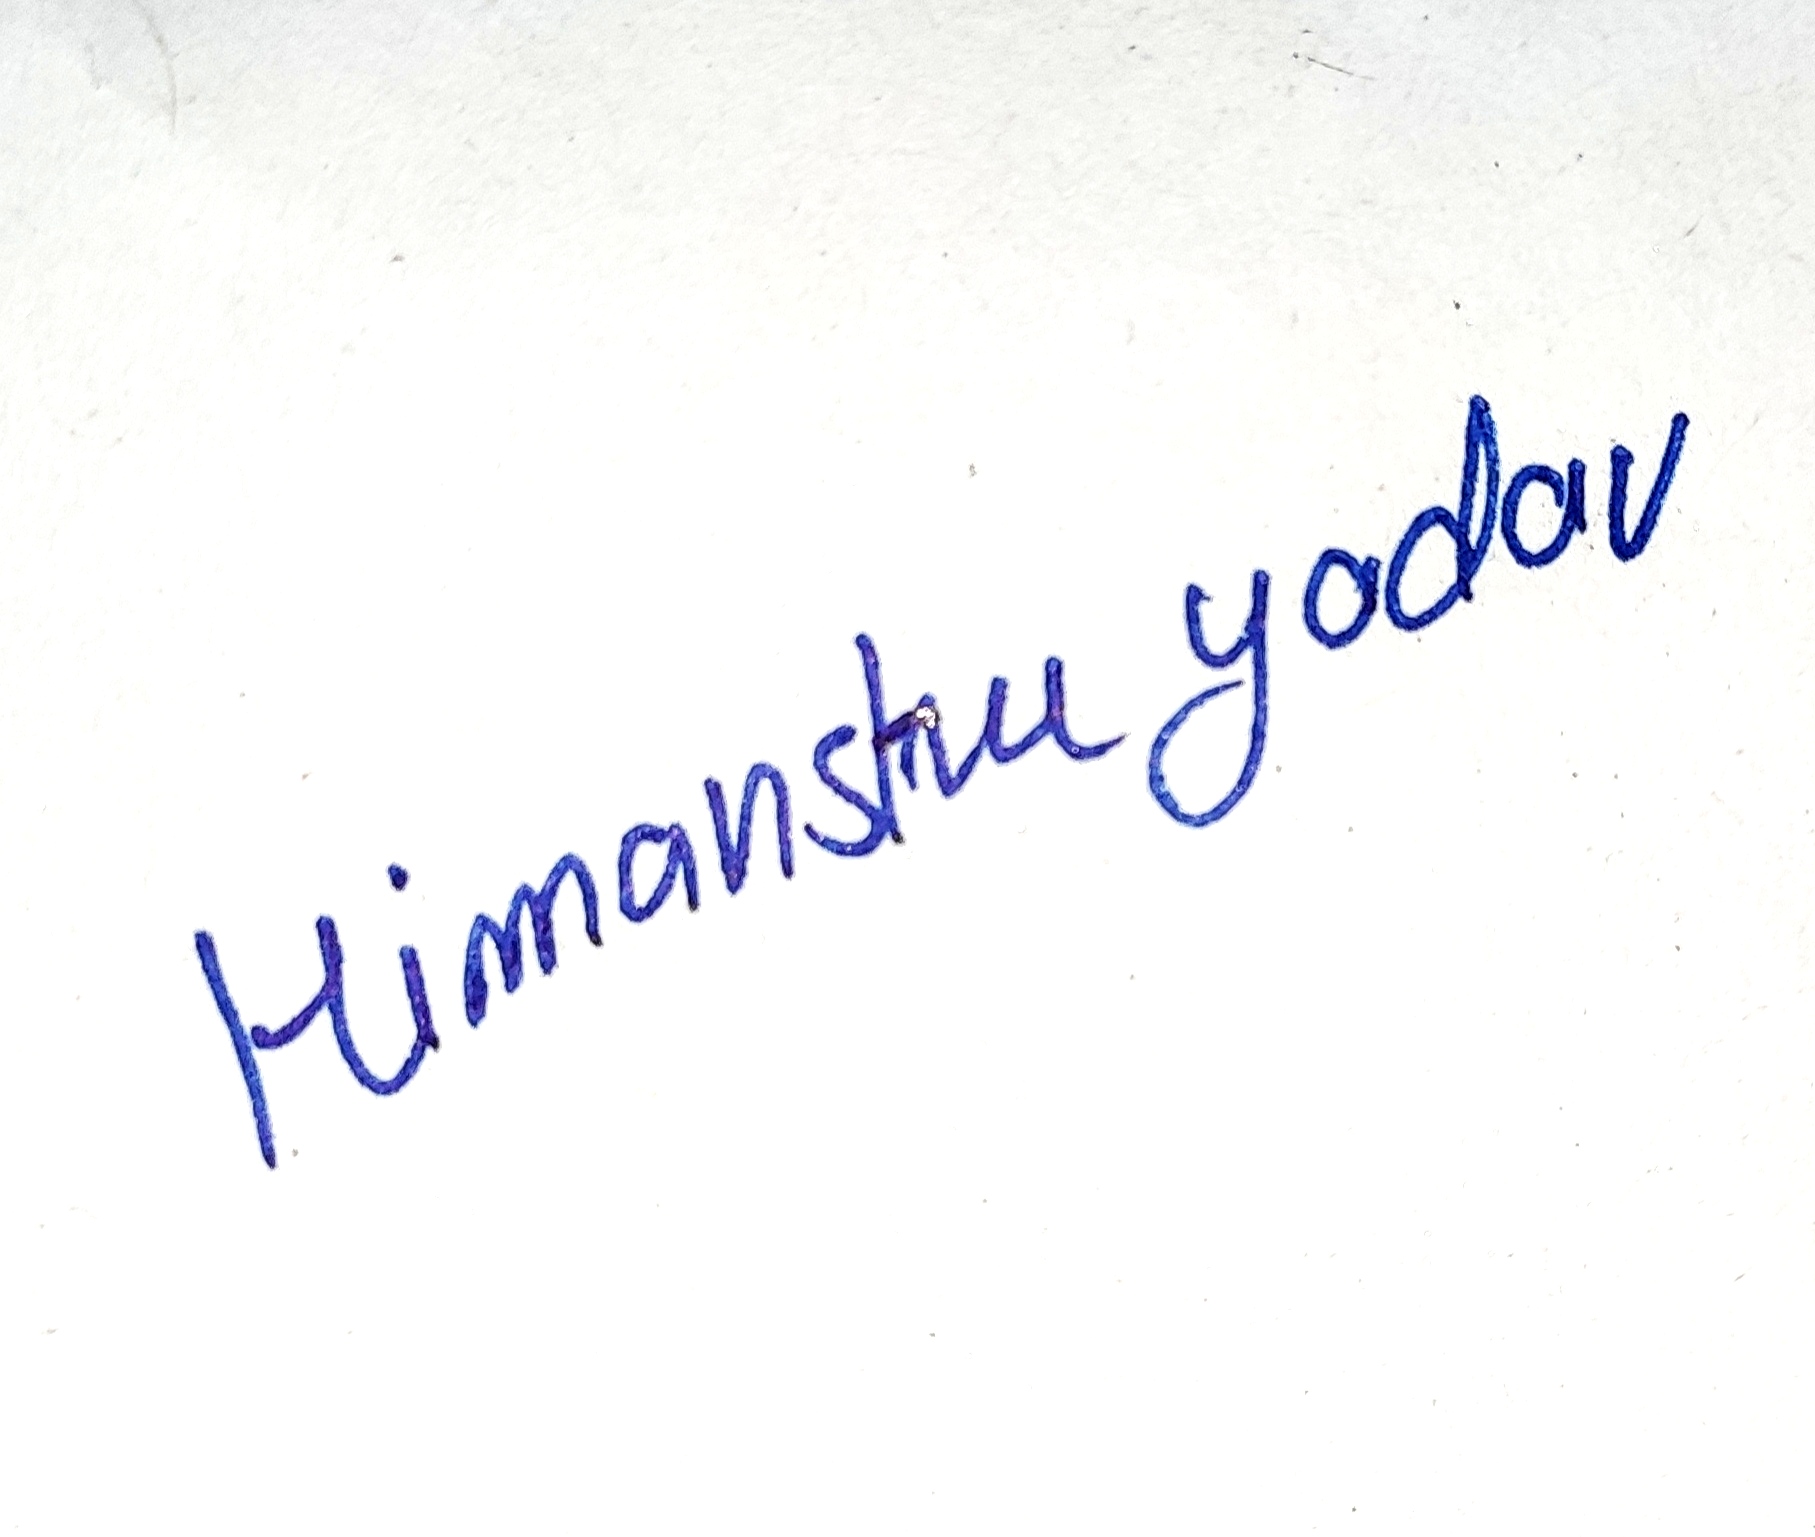 Himanshu yadav